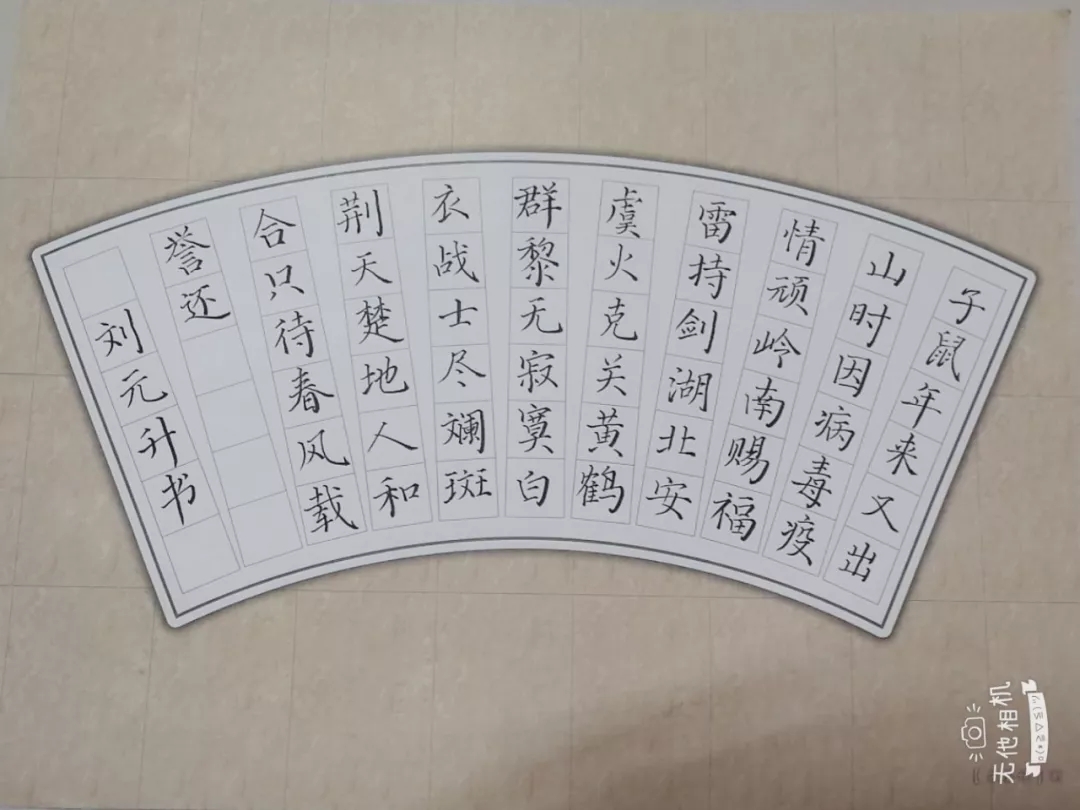 子鼠年来又出
山时因病毒疫
情顽岭南赐福
雷持剑湖北安
虞火克关黄鹤
群黎无寂寞白
衣战士尽斓斑
荆天楚地人和
合只待春风载
誉还
刘元升书
无他相机